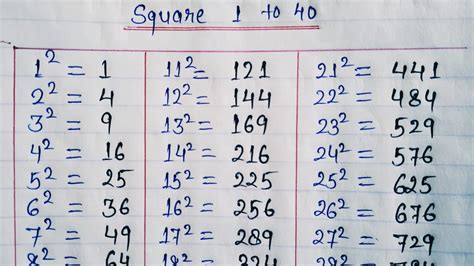 Square 1 to 40
1² = 1 11² = 121 21² = 441
2² = 4 12² = 144 22² = 484
3² = 9 13² = 169 23² = 529
4² = 16 14² = 216 24² = 576
5² = 25 15² = 225 25² = 625
6² = 36 16² = 256 26² = 676
7² = 49 17² = 289 27² = 729
8² = 64 18² = 324 28² = 784